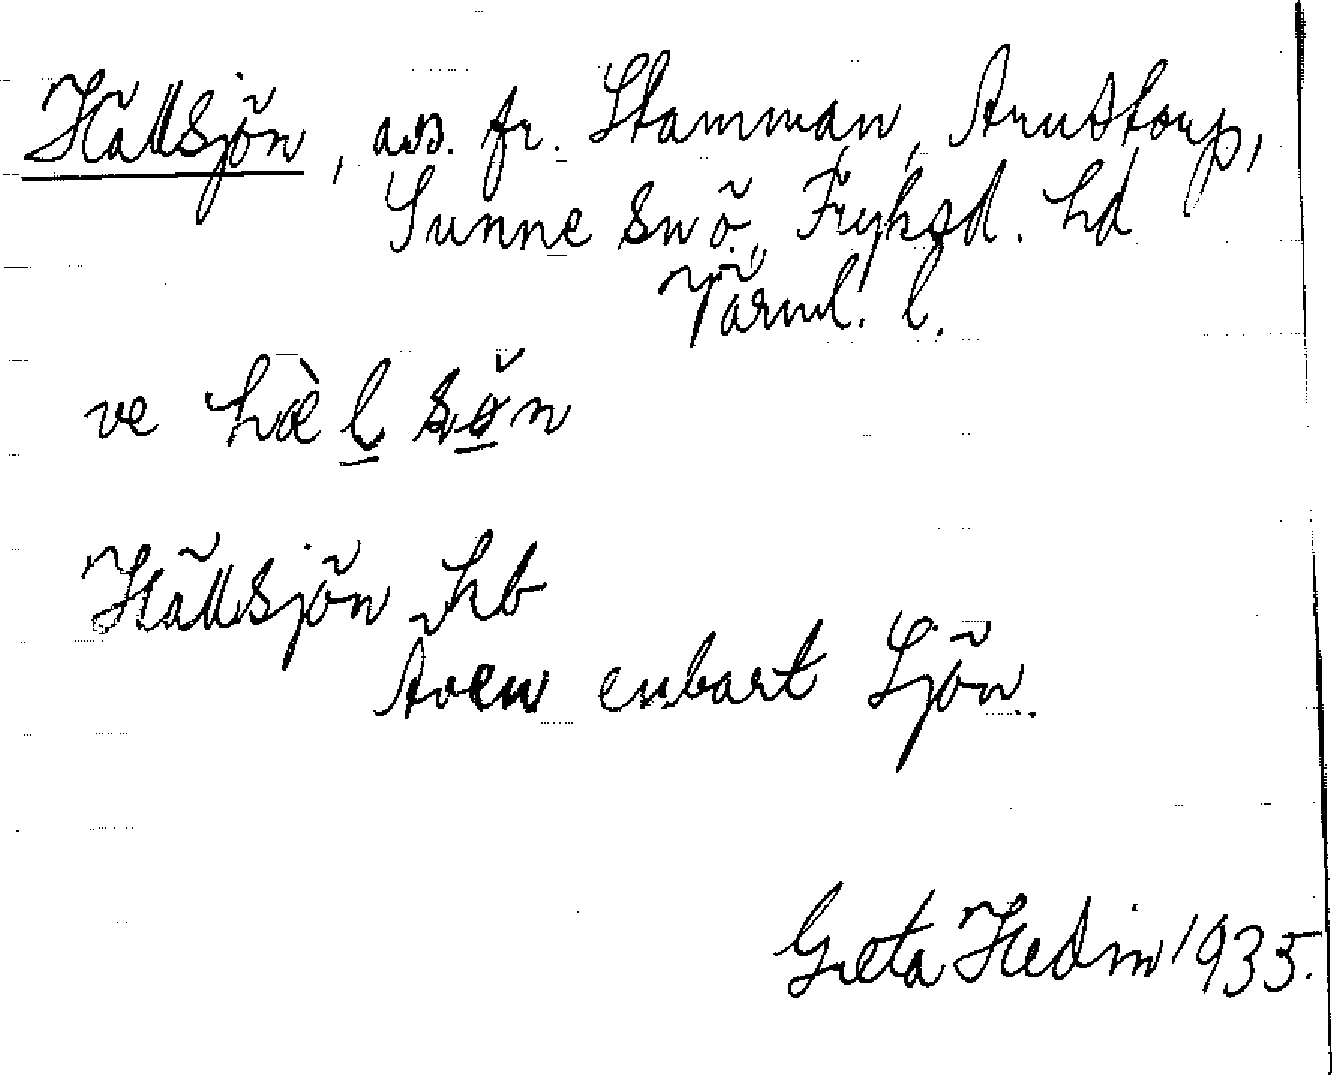 Hällsjön, avs. fr. Stamman, Arnstorp,
Sunne snö, Fryksd. hd
Värml. l.
ve hæ̀l søn
Hällsjön hb
Även enbart Sjön.
Greta Hedin 1935.